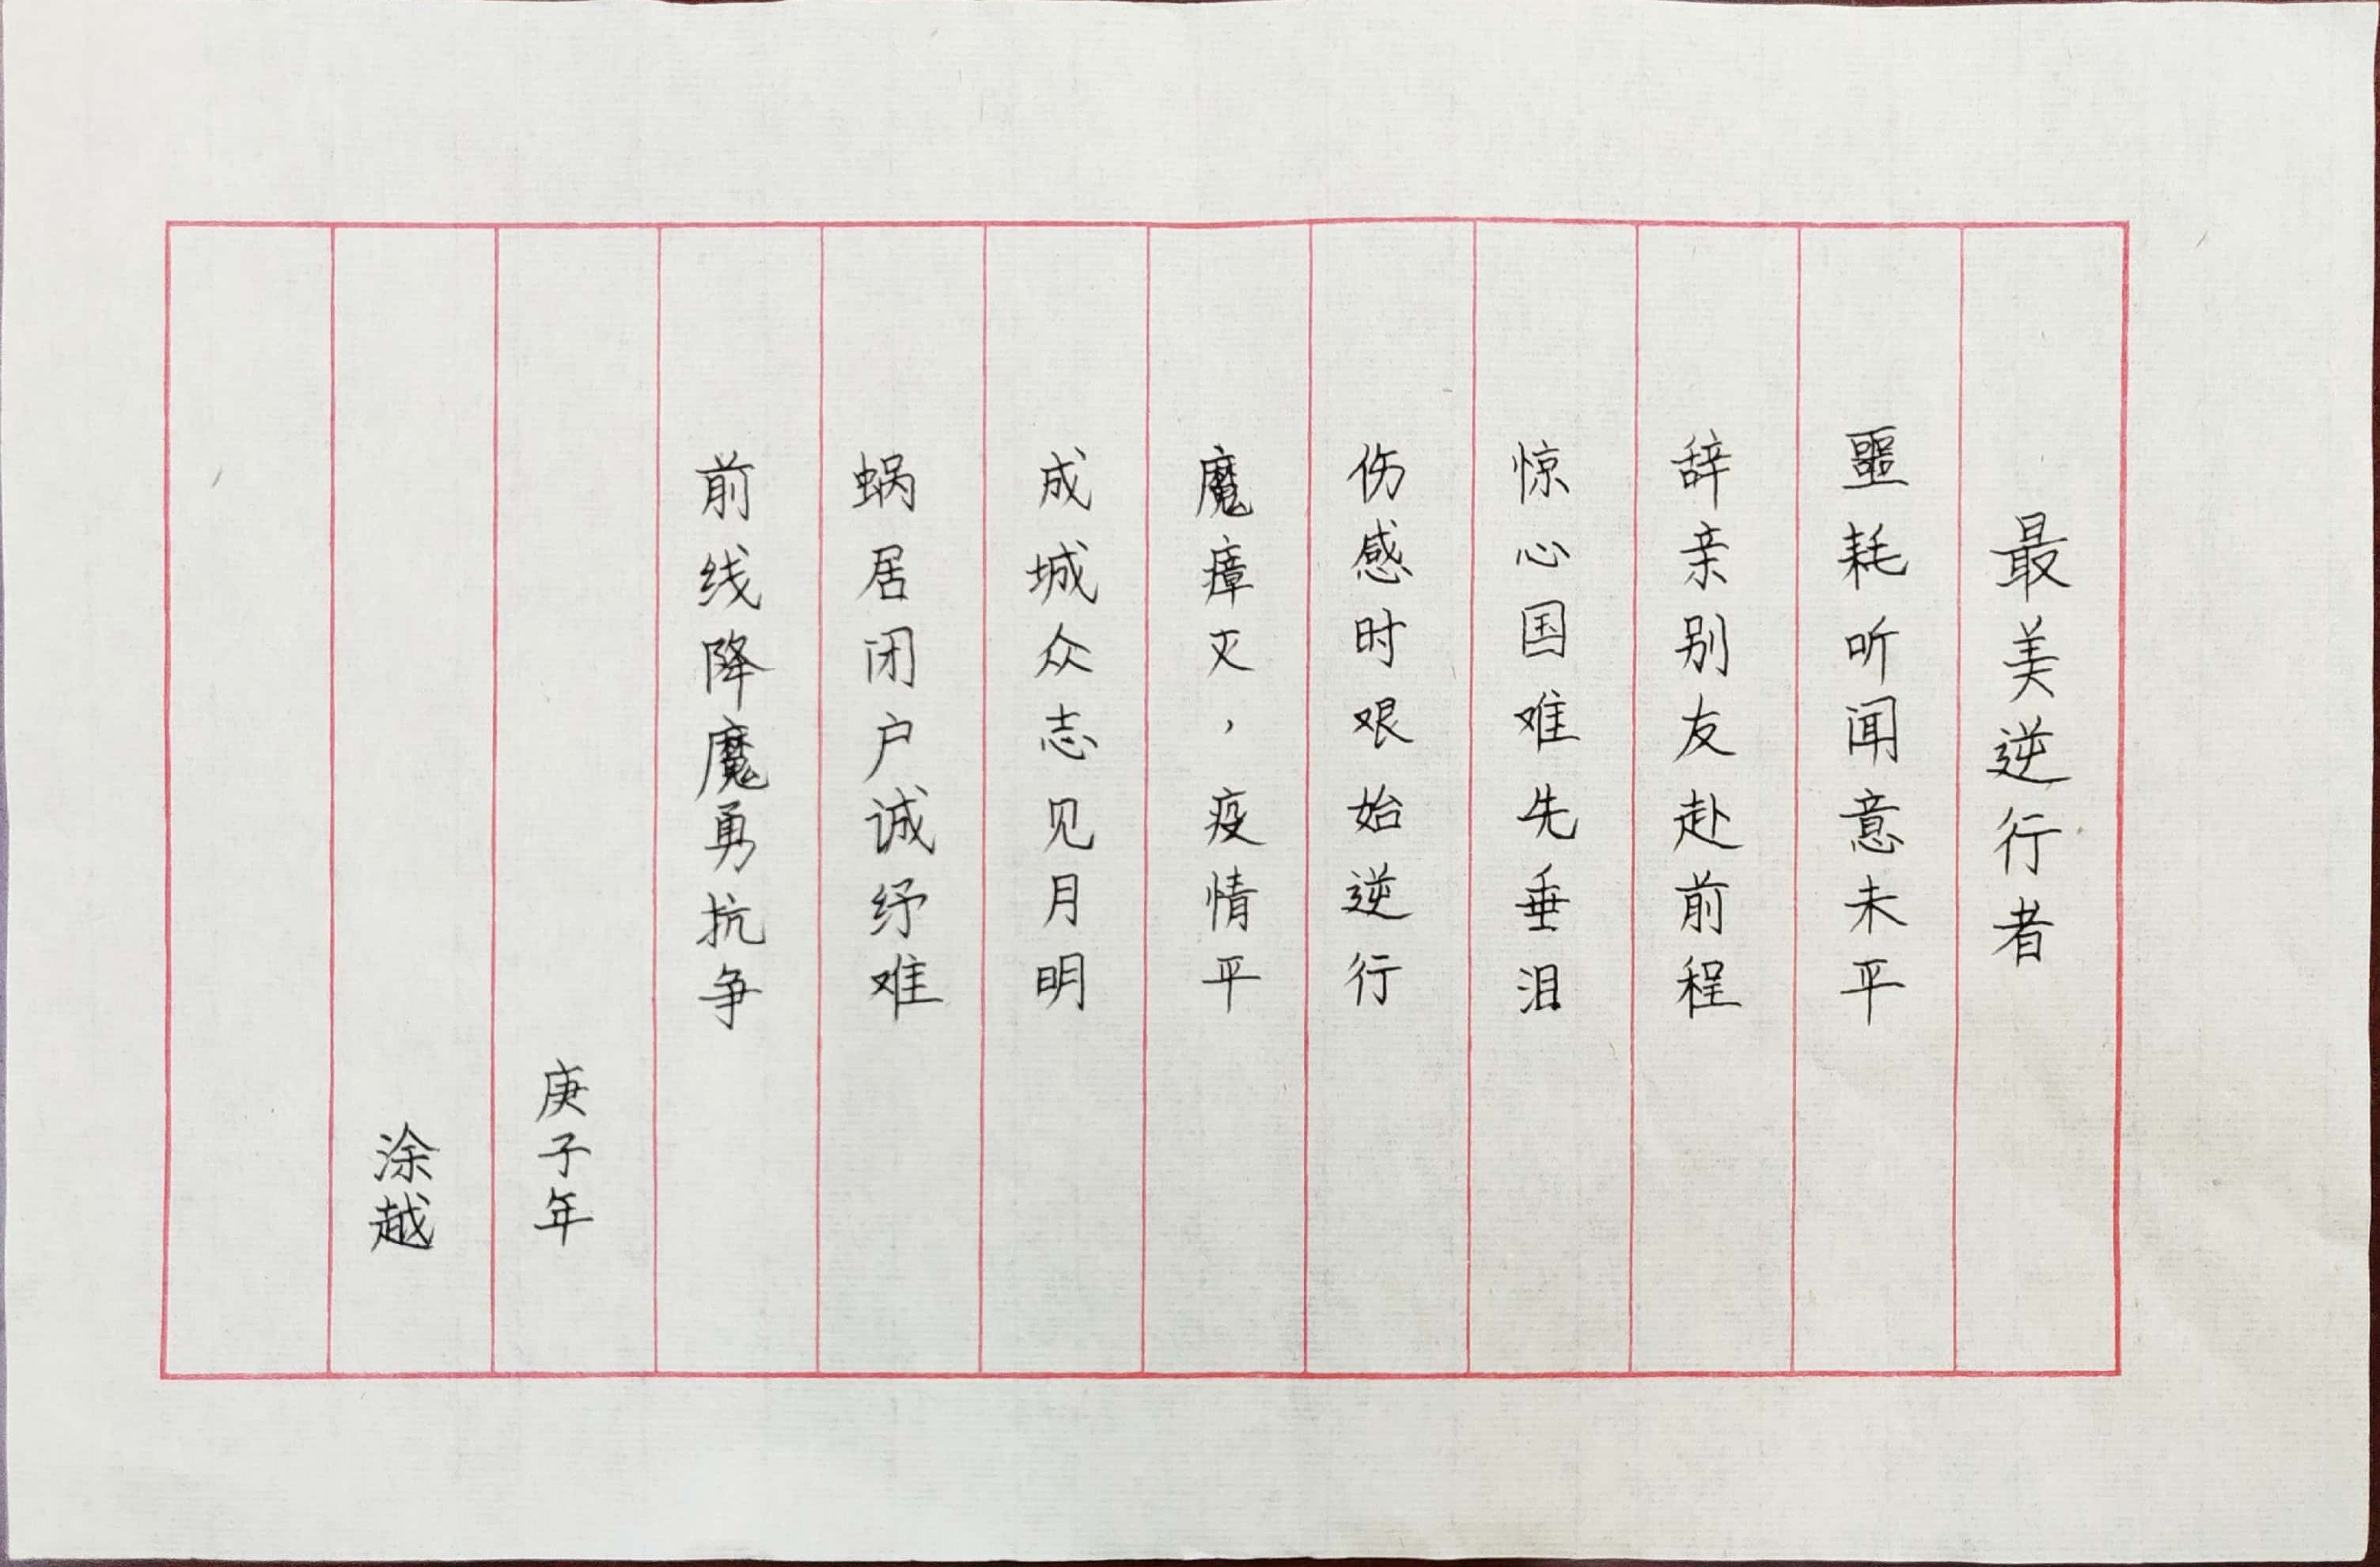 最美逆行者
噩耗听闻意未平
辞亲别友赴前程
惊心国难先垂泪
伤感时艰始逆行
魔瘴灭，疫情平
成城众志见月明
蜗居闭户诚纾难
前线降魔勇抗争
庚子年
涂越